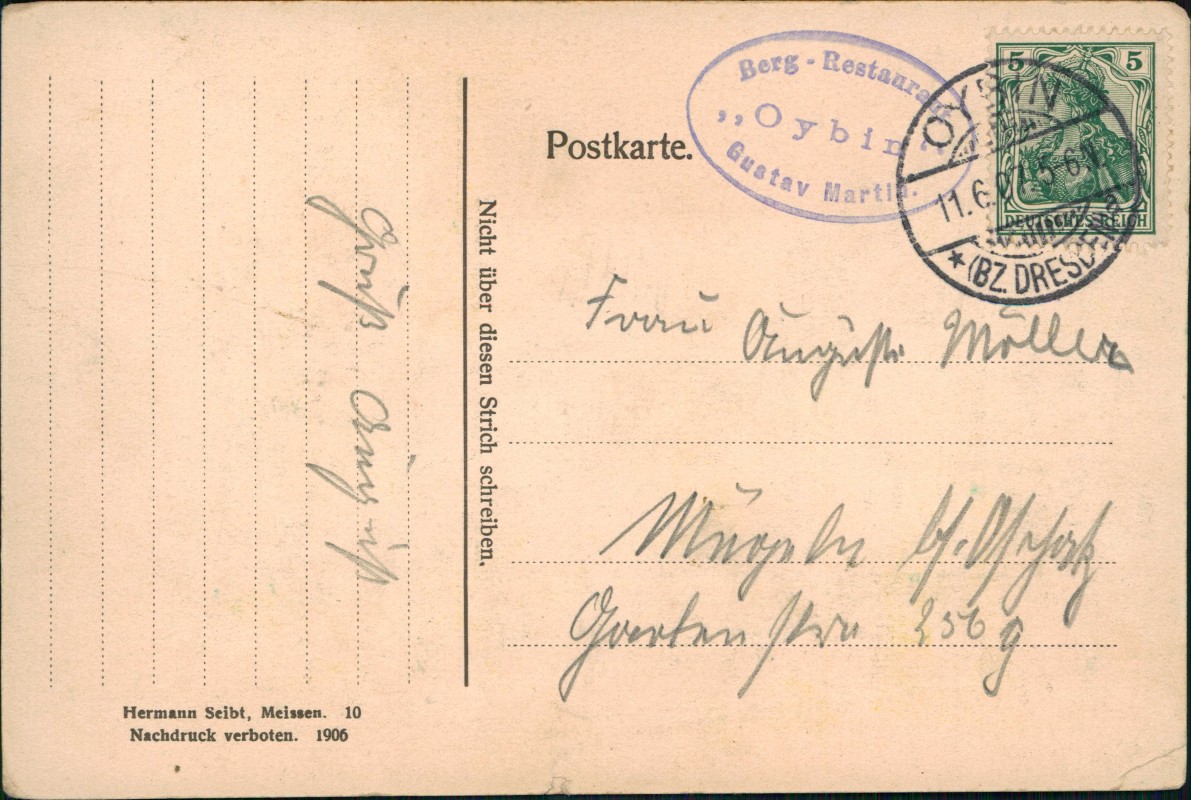 Berg-Restaurant
„Oybin“
Gustav Martin.
5 5
DEUTSCHES REICH
OYBIN
11.6.07.5-6N.
* (BZ. DRESDEN) a
Postkarte.
Frau Auguste Möller
Mügeln bf. Oschatz
Gartenstr. 256 g
Nicht über diesen Strich schreiben.
Gruß
Hermann Seibt, Meissen. 10
Nachdruck verboten. 1906